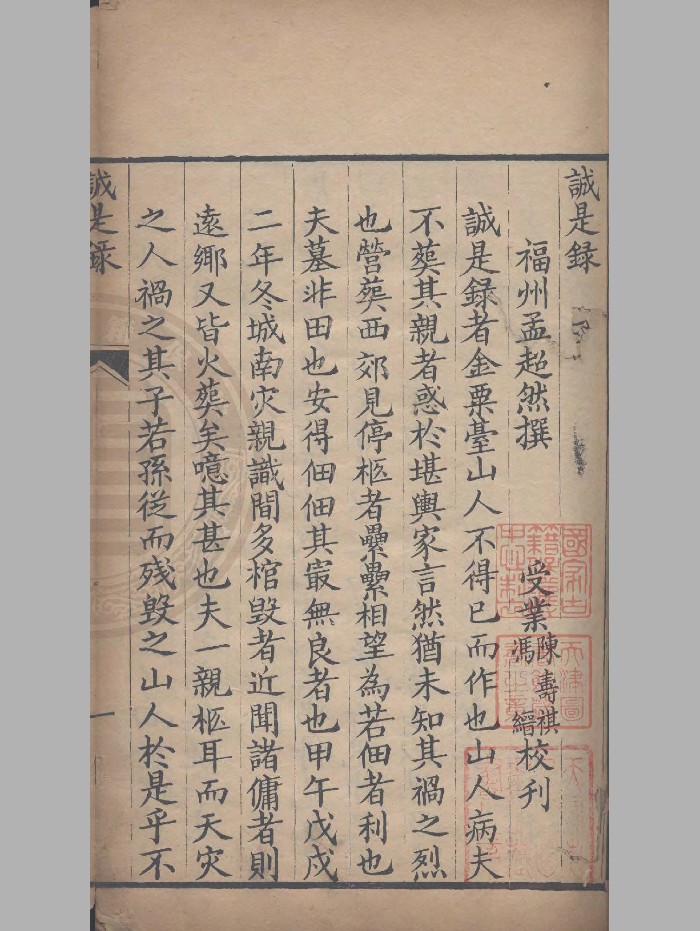 誠是録
福州孟超然撰 受業陳壽祺馮縉校刋
誠是録者金粟臺山人不得已而作也山人病夫
不葬其親者惑於堪輿家言然猶未知其禍之烈
也營葬西郊見停柩者纍纍相望為若佃者利也
夫墓非田也安得佃佃其冣無良者也甲午戊戍
二年冬城南灾親識間多棺毁者近聞諸傭者則
遠鄉又皆火葬矣噫其甚也夫一親柩耳而天灾
之人禍之其子若孫從而殘毁之山人於是乎不
誠是録
一